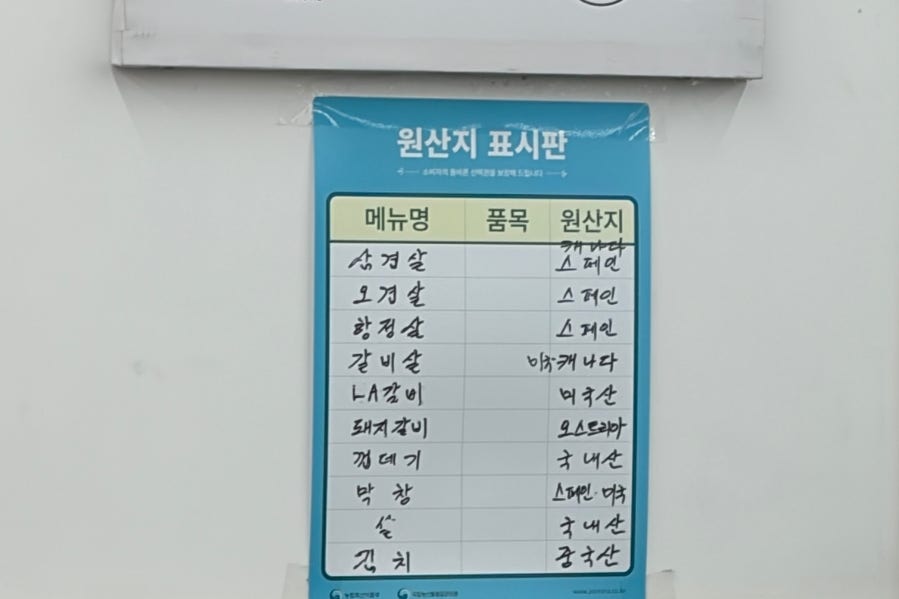 원산지 표시판
소비자의 올바른 선택권을 보장해 드립니다
메뉴명 품목 원산지
삼겹살 캐나다 스페인
오겹살 스페인
항정살 스페인
갈비살 미국 캐나다
LA갈비 미국산
돼지갈비 오스트리아
껍데기 국내산
막창 스페인·미국
쌀 국내산
김치 중국산
농림축산식품부 국립농산물품질관리원